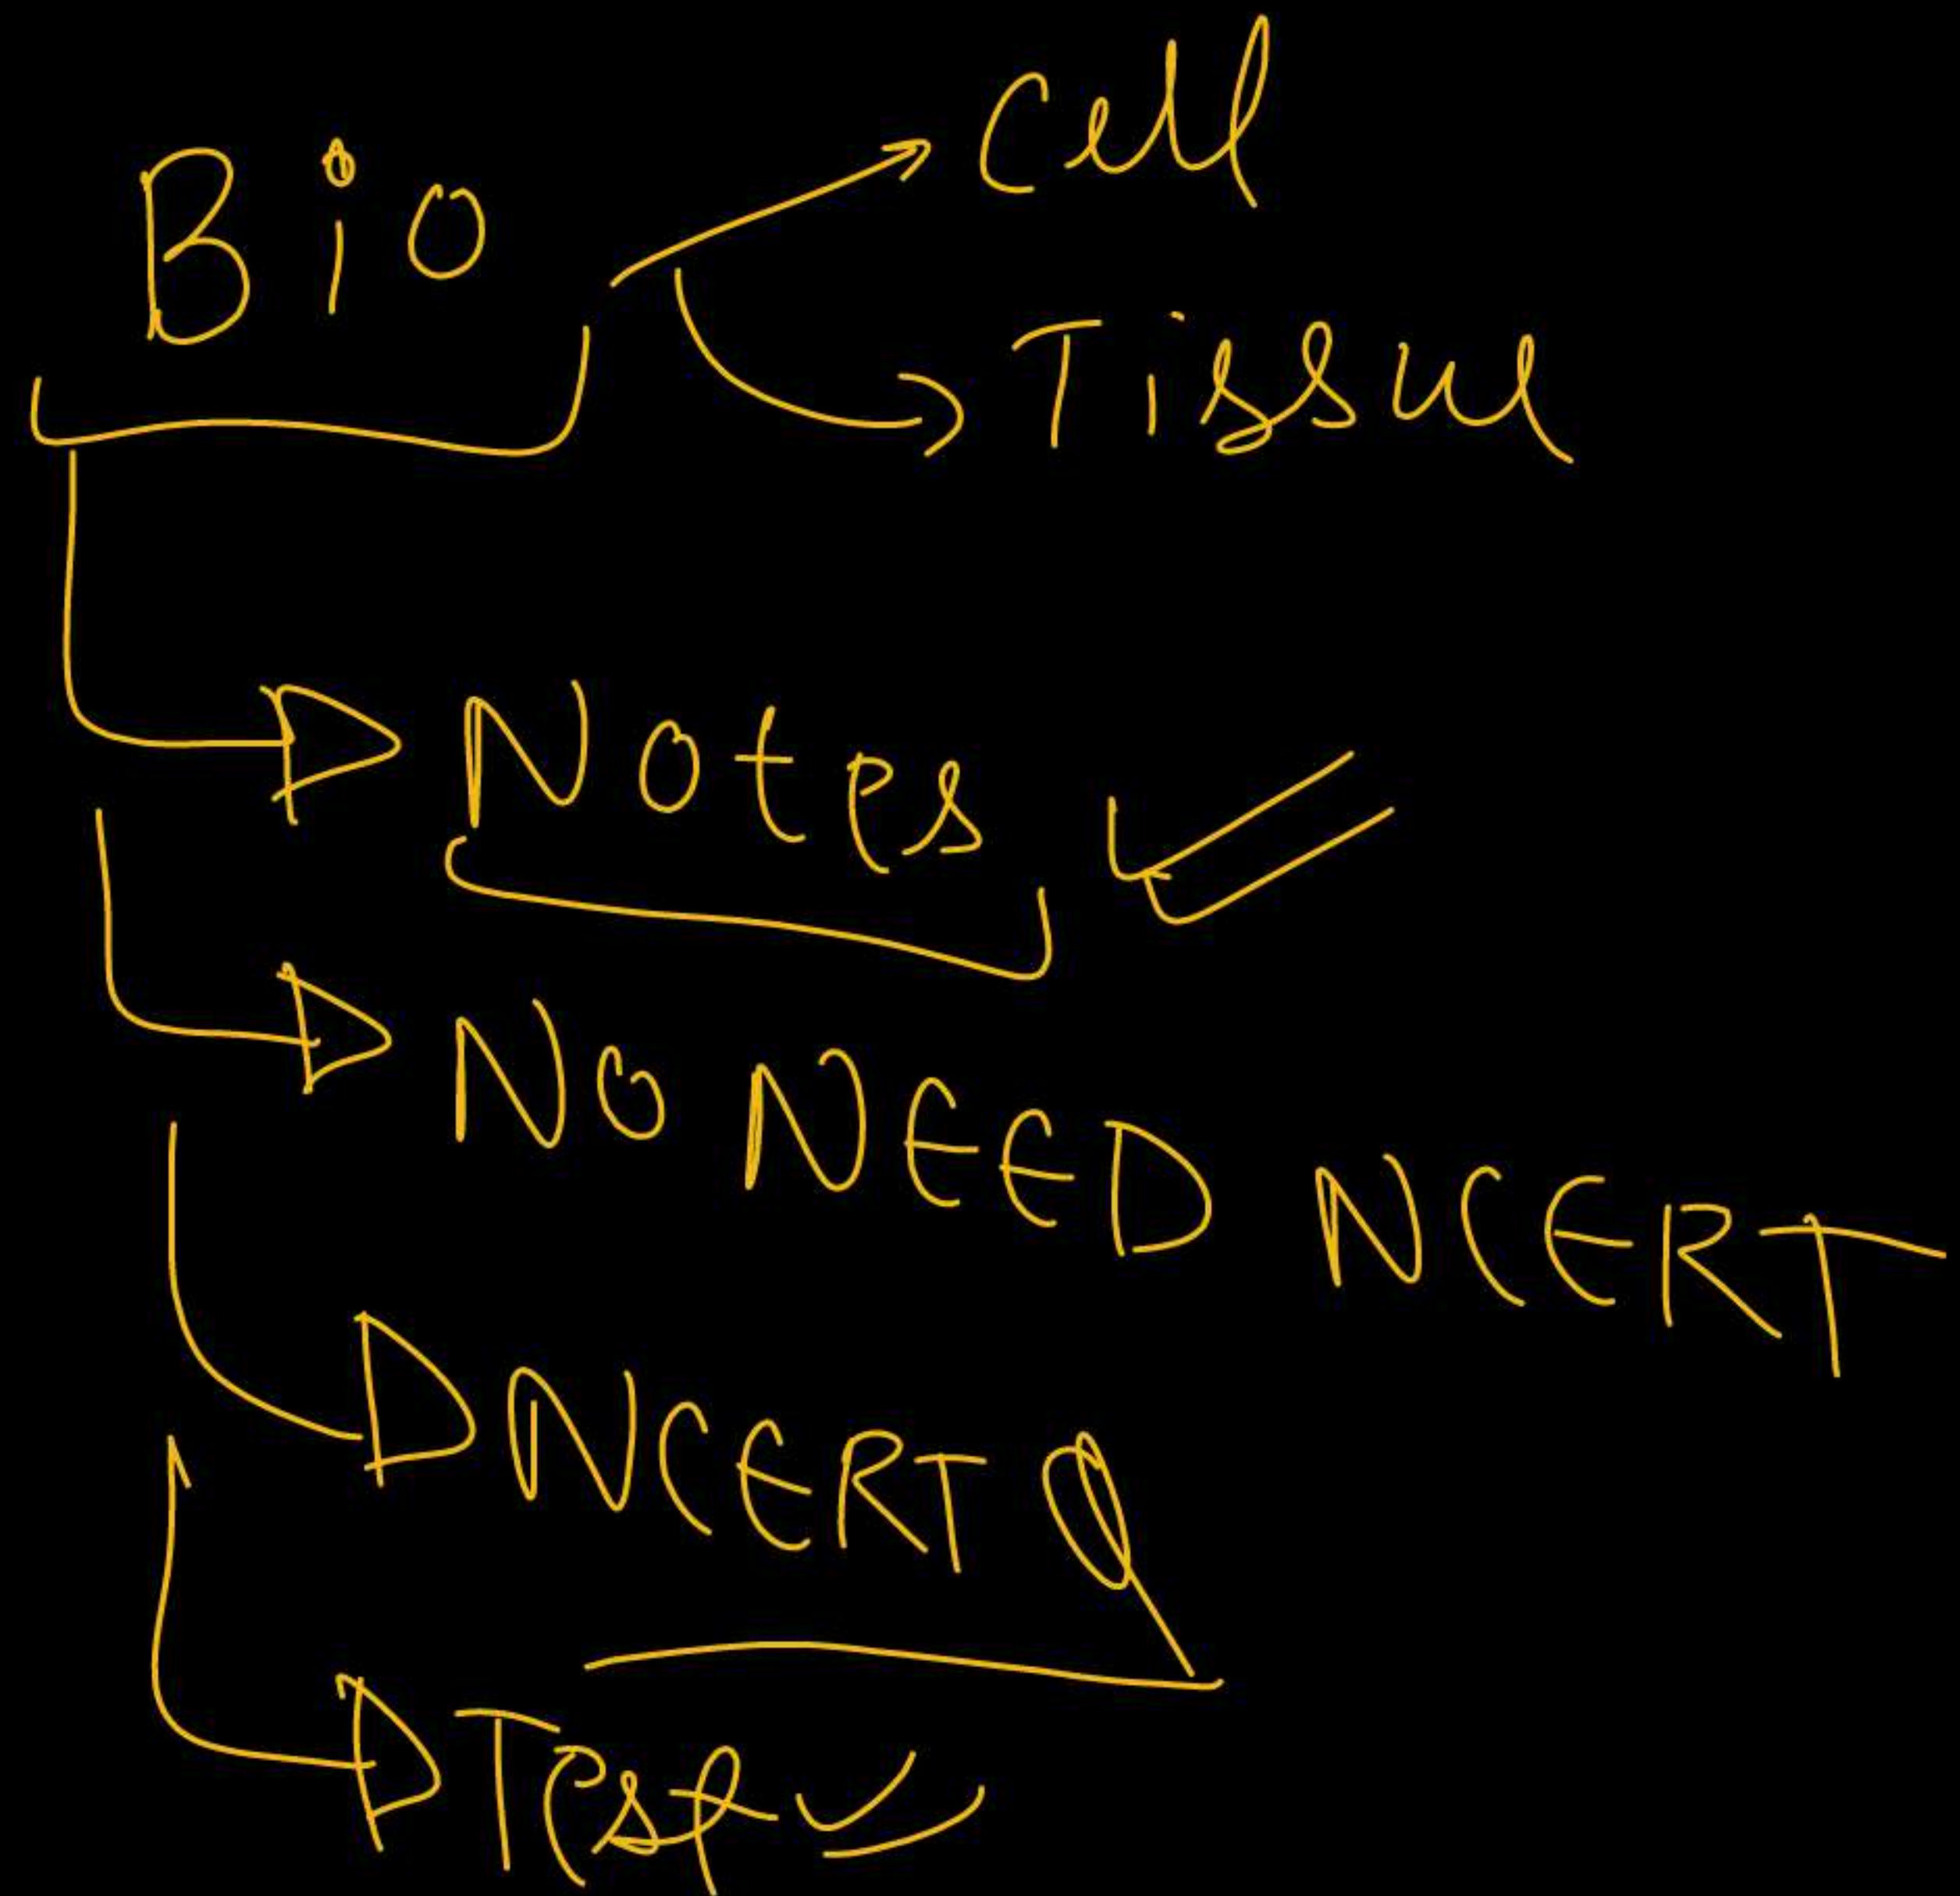 Bio
Cell
Tissue
Notes
NO NEED NCERT
NCERT Q
Test